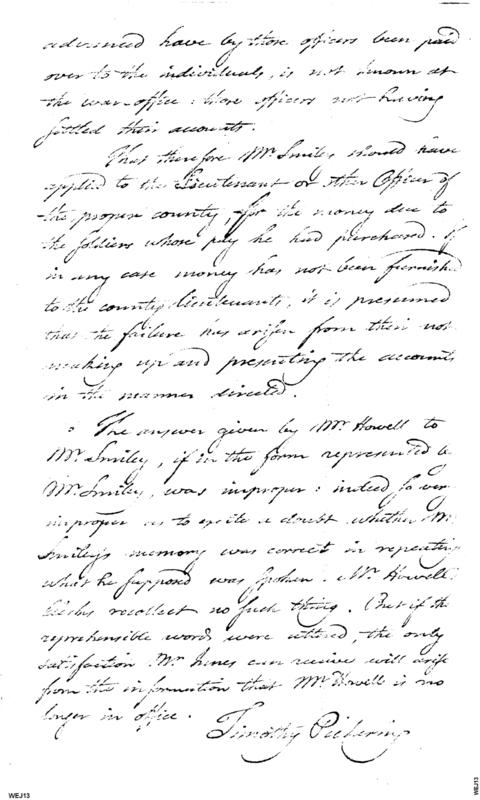 advanced have by those officers been paid
over to the individuals, is not known at
the war-office: those officers not having
settled their accounts.
That therefore Mr. Smiley should have
applied to the Lieutenant or other Officer of
the proper county, for the money due to
the soldiers whose pay he had purchased. If
in any case money has not been furnished
to the county lieutenants, it is presumed
that the failure has arisen from their not
making up and presenting the accounts
in the manner directed.
The answer given by Mr. Howell to
Mr. Smiley, if in the form represented by
Mr. Smiley, was improper: indeed so very
improper as to excite a doubt whether Mr.
Smiley's memory was correct in repeating
what he supposed was spoken. Mr. Howell
recollect no such things. But if the
reprehensible words were uttered, the only
satisfaction Mr. Innes can receive will arise
from the information that Mr. Howell is no
longer in office.
Timothy Pickering
WEJ13
WEJ13